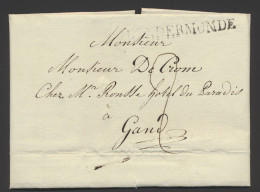 DERMONDE
Monsieur
Monsieur De Crom
Chez Mr. Roustte hotel du Paradis
à
Gand
2